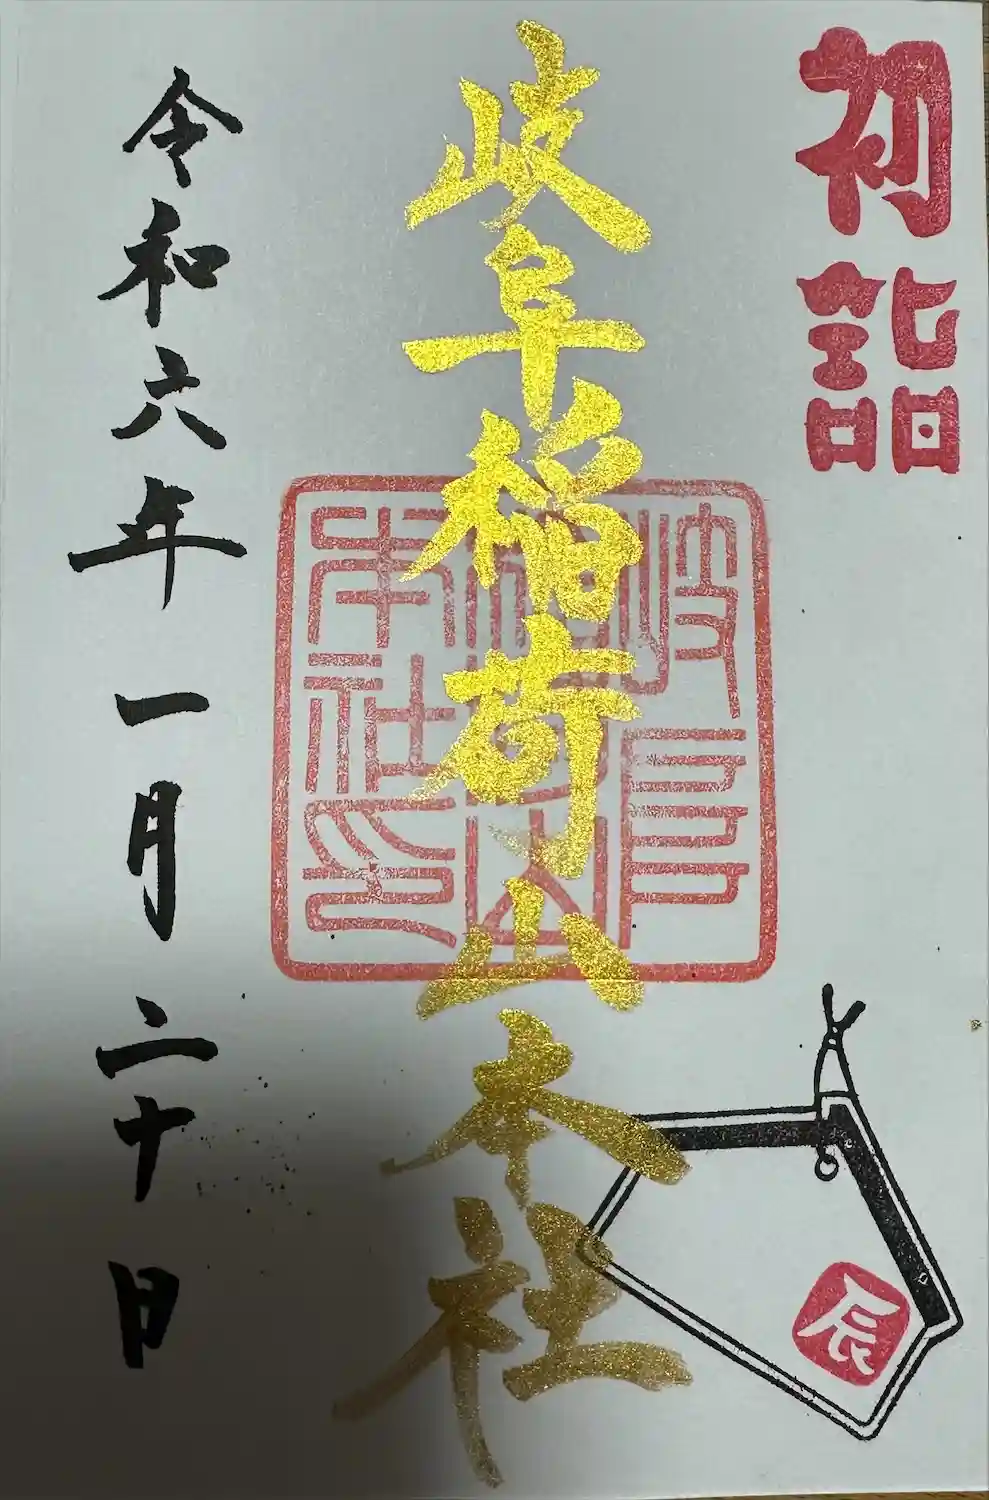 初詣
岐阜稲荷山本社
岐阜稲荷山本社印
辰
令和六年一月二十日